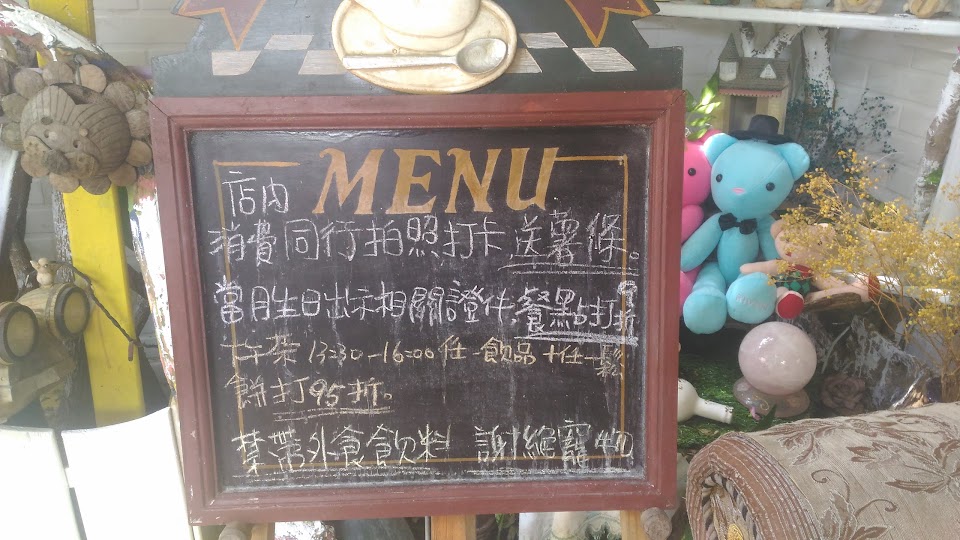 MENU
店內
消費同行拍照打卡送薯條。
當月生日出示相關證件,餐點打9折
下午茶 13:30-16:00 任一飲品+任一鬆
餅打95折。
禁帶外食飲料 謝絕寵物